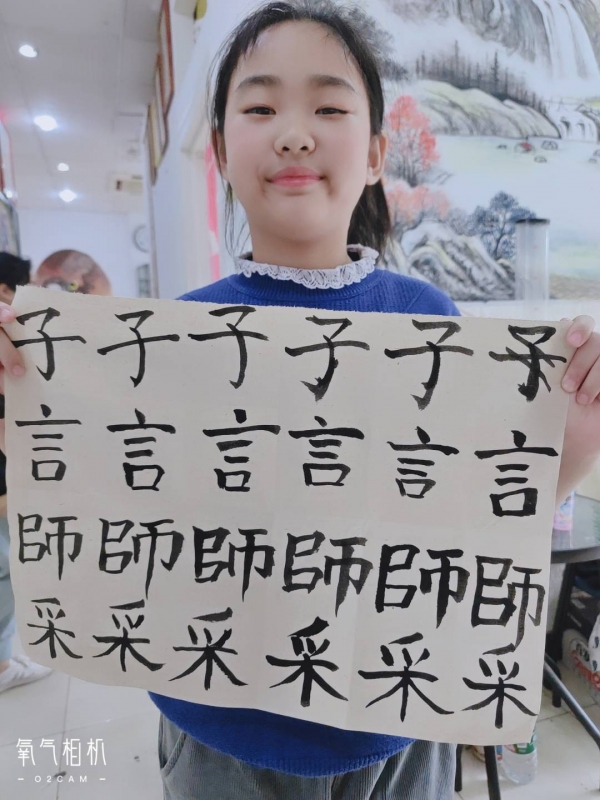 子子子子子子
言言言言言言
師師師師師師
采采采采采采
氧气相机
O2CAM